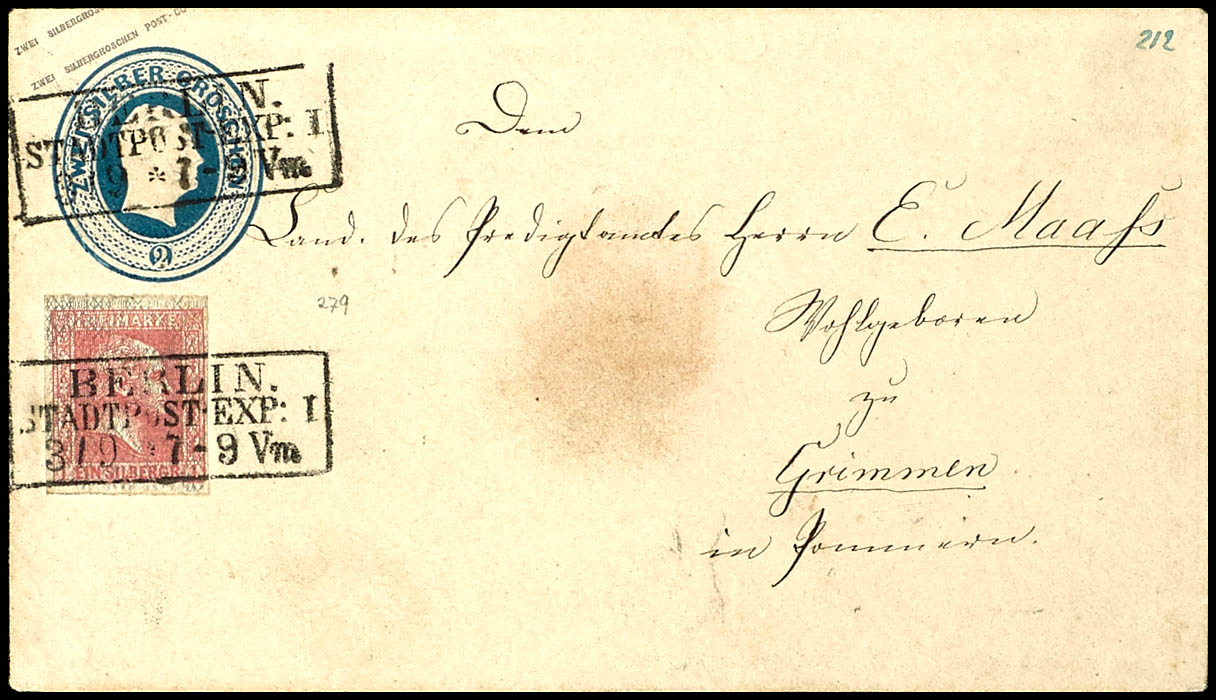 ZWEI SILBERGROSCHEN
ZWEI SILBERGROSCHEN POST-CO
212
ZWEI SILBER GROSCHEN
2
BERLIN.
STADTPOST-EXP: I
9 * 7-9 Vm
Dem
Cand. des Predigtamtes Herrn E. Maaß
279
Wohlgeboren
FREIMARKE
BERLIN.
STADTPOST-EXP: I
3 / 9 * 7-9 Vm
EIN SILBERGR.
zu
Grimmen
in Pommern.